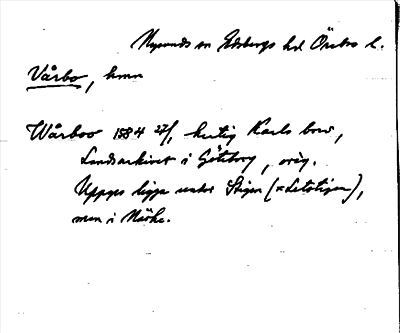 Nysunds sn Edsbergs hd Örebro l.
Vårbo, hmn
Wårboo 1584 27/1, hertig Karls brev,
Landsarkivet i Göteborg, orig.
Uppges ligga under Stigen (=Letstigen),
men i Närke.